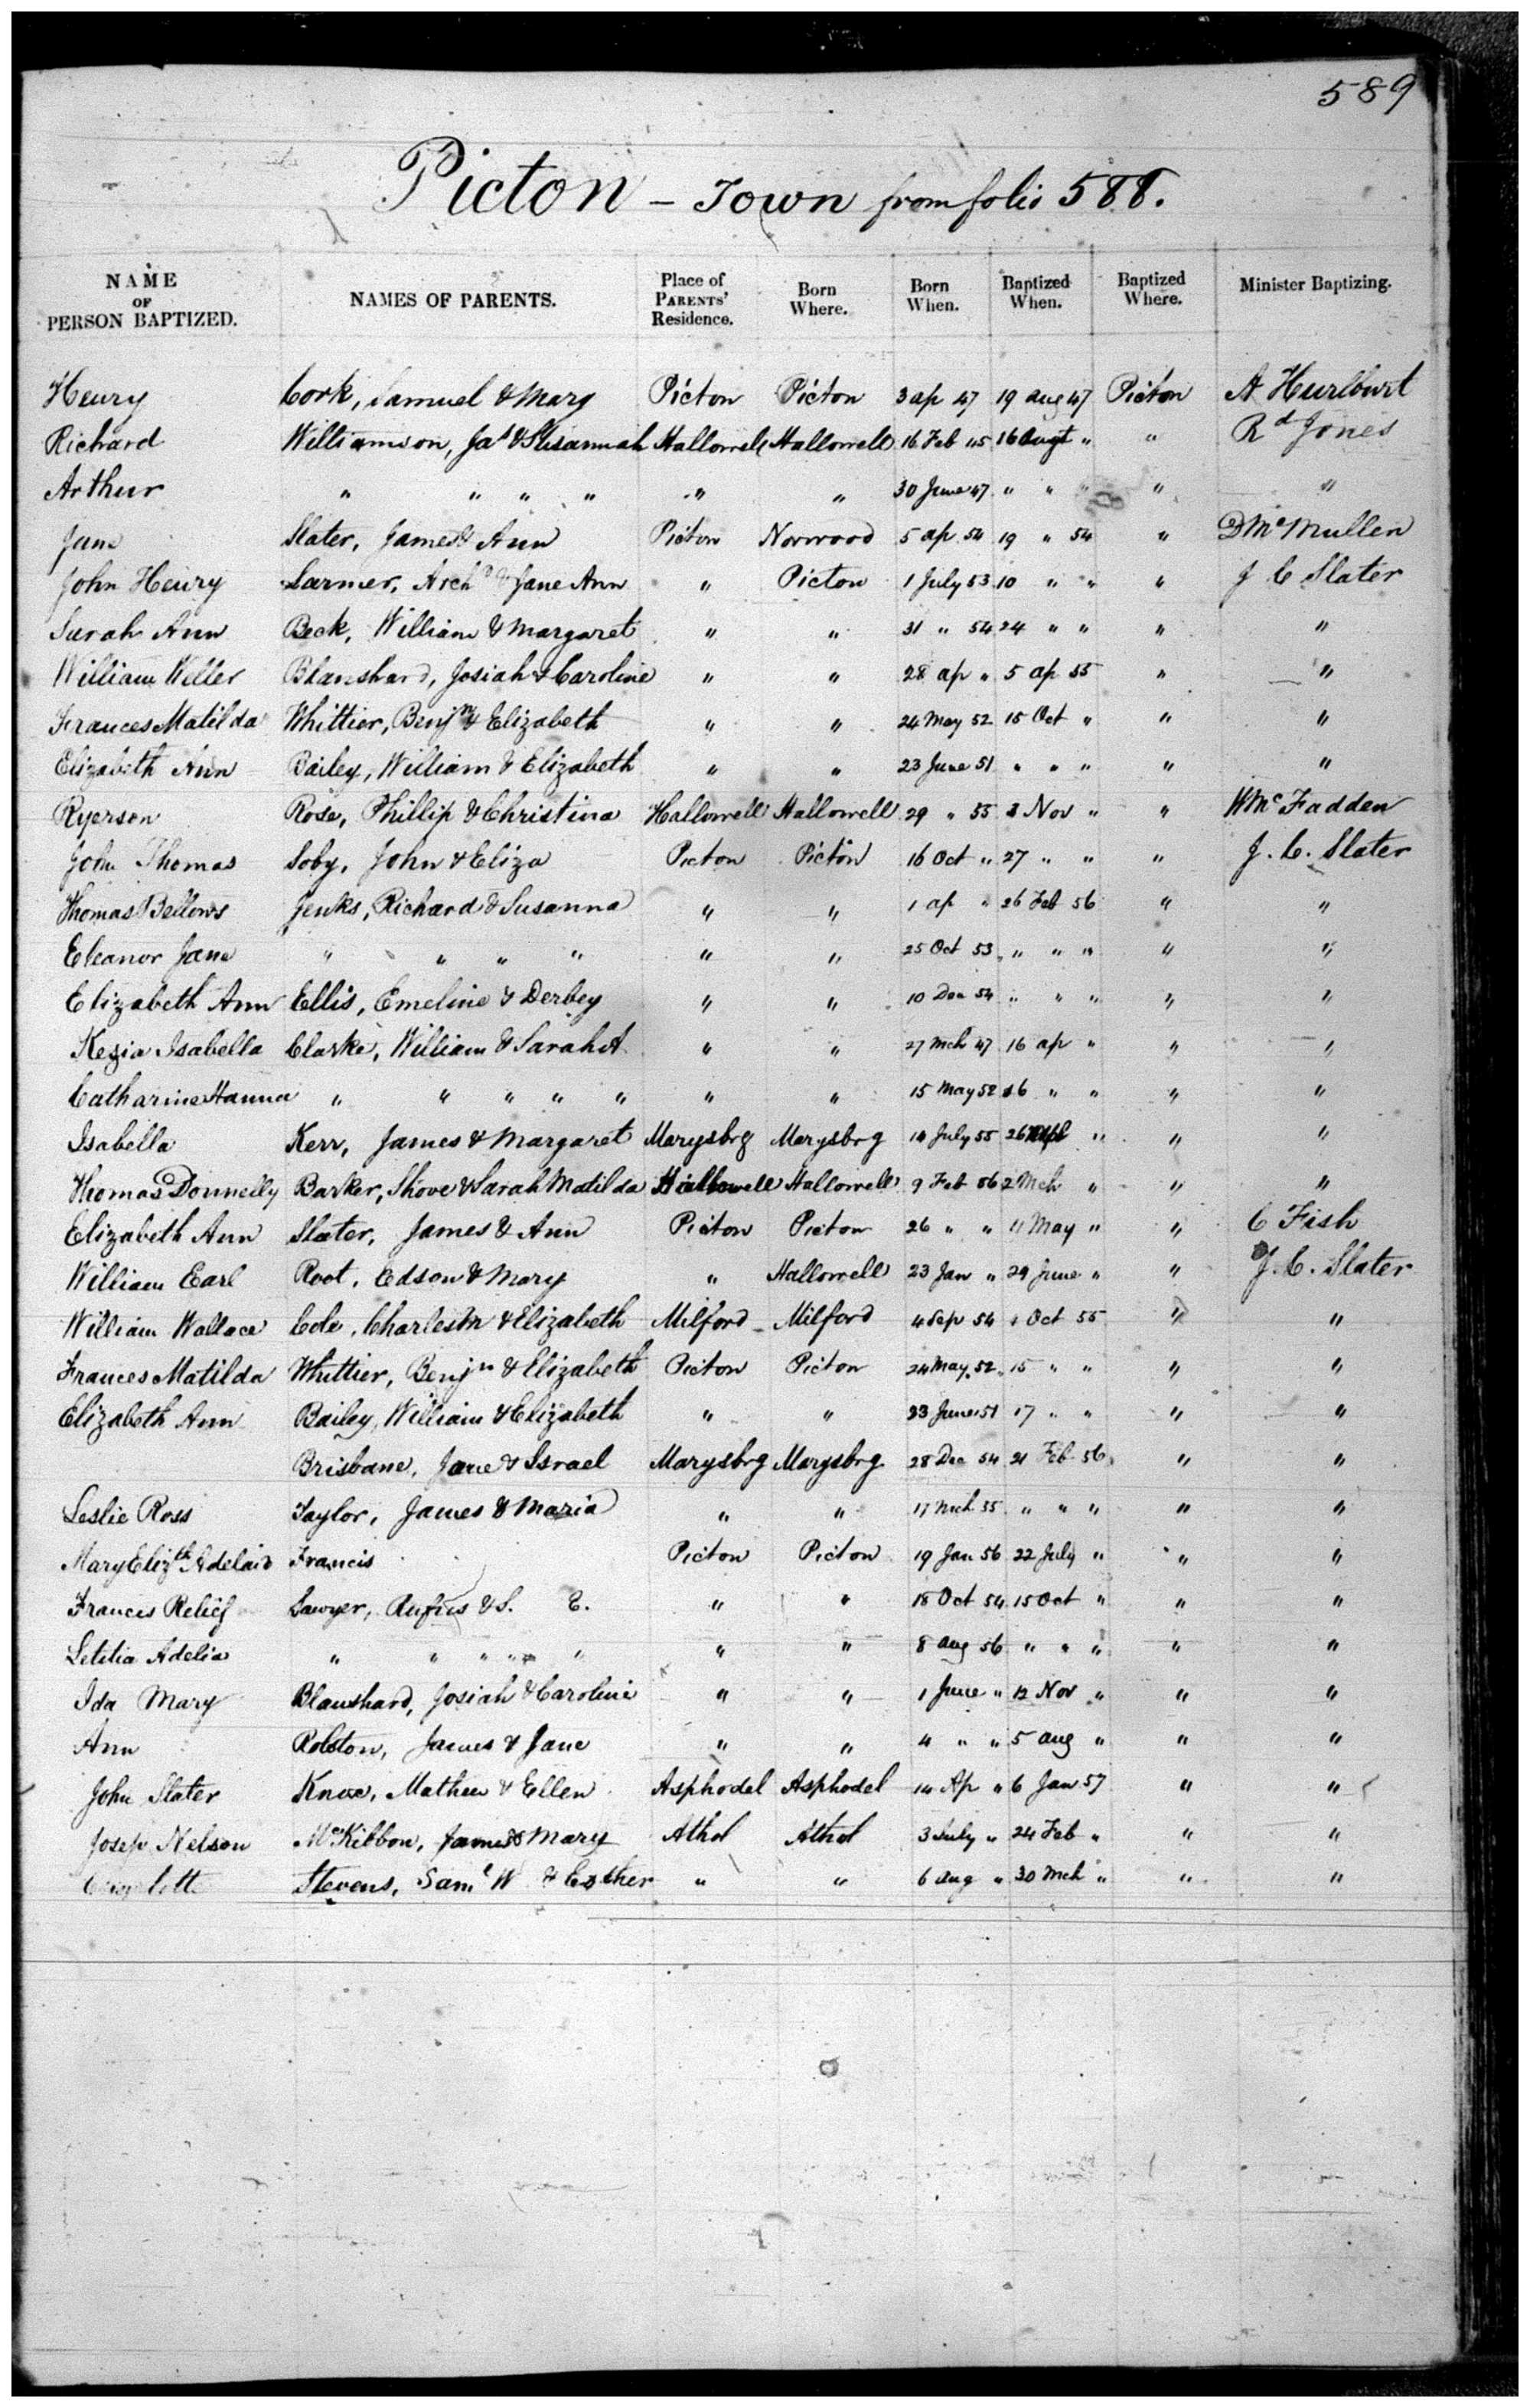 589
Picton - Town from folio 588.
NAME OF PERSON BAPTIZED. NAMES OF PARENTS. Place of PARENTS' Residence. Born Where. Born When. Baptized When. Baptized Where. Minister Baptizing.
Henry Cork, Samuel & Mary Picton Picton 3 ap 47 19 aug 47 Picton A Hurlburt
Richard Williamson, Jas & Susannah Hallowell Hallowell 16 Feb 45 16 Augt " " Rd Jones
Arthur " " " " " " 30 June 47 " " " " "
Jane Slater, James & Ann Picton Norwood 5 ap 54 19 " 54 " D McMullen
John Henry Larmer, Archd & Jane Ann " Picton 1 July 53 10 " " " J C Slater
Sarah Ann Beck, William & Margaret " " 31 " 54 24 " " " "
William Weller Blanshard, Josiah & Caroline " " 28 ap " 5 ap 55 " "
Frances Matilda Whittier, Benjn & Elizabeth " " 24 May 52 15 Oct " " "
Elizabeth Ann Bailey, William & Elizabeth " " 23 June 51 " " " " "
Ryerson Rose, Phillip & Christina Hallowell Hallowell 29 " 55 3 Nov " " W McFadden
John Thomas Soby, John & Eliza Picton Picton 16 Oct " 27 " " " J. C. Slater
Thomas Bellows Jenks, Richard & Susanna " " 1 ap " 26 Feb 56 " "
Eleanor Jane " " " " " " 25 Oct 53 " " " " "
Elizabeth Ann Ellis, Emeline & Derbey " " 10 Dec 54 " " " " "
Kezia Isabella Clarke, William & Sarah A " " 27 Mch 47 16 ap " " "
Catharine Hanna " " " " " " " 15 May 52 16 " " " "
Isabella Kerr, James & Margaret Marysbrg Marysbrg 14 July 55 26 " " "
Thomas Donnelly Barker, Shove & Sarah Matilda Hallowell Hallowell 9 Feb 56 2 Mch " " "
Elizabeth Ann Slater, James & Ann Picton Picton 26 " " 11 May " " C Fish
William Earl Root, Edson & Mary " Hallowell 23 Jan " 29 June " " J. C. Slater
William Wallace Cole, Charles & Elizabeth Milford Milford 4 Sep 54 1 Oct 55 " "
Frances Matilda Whittier, Benjn & Elizabeth Picton Picton 24 May 52 15 " " " "
Elizabeth Ann Bailey, William & Elizabeth " " 23 June 51 17 " " " "
Brisbane, Jane & Israel Marysbrg Marysbrg 28 Dec 54 21 Feb 56 " "
Leslie Ross Taylor, James & Maria " " 17 Mch 55 " " " " "
Mary Elizth Adelaid Francis Picton Picton 19 Jan 56 22 July " " "
Francis Relief Sawyer, Rufus & S. E. " " 18 Oct 54 15 Oct " " "
Letitia Adelia " " " " " " " 8 aug 56 " " " " "
Ida Mary Blanshard, Josiah & Caroline " " 1 June " 12 Nov " " "
Ann Rolston, James & Jane " " 4 " " 5 aug " " "
John Slater Knox, Mathew & Ellen Asphodel Asphodel 14 Ap " 6 Jan 57 " "
Josep Nelson McKibbon, James & Mary Athol Athol 3 July " 24 Feb " " "
Stevens, Saml W & Esther " " 6 aug " 30 Mch " " "